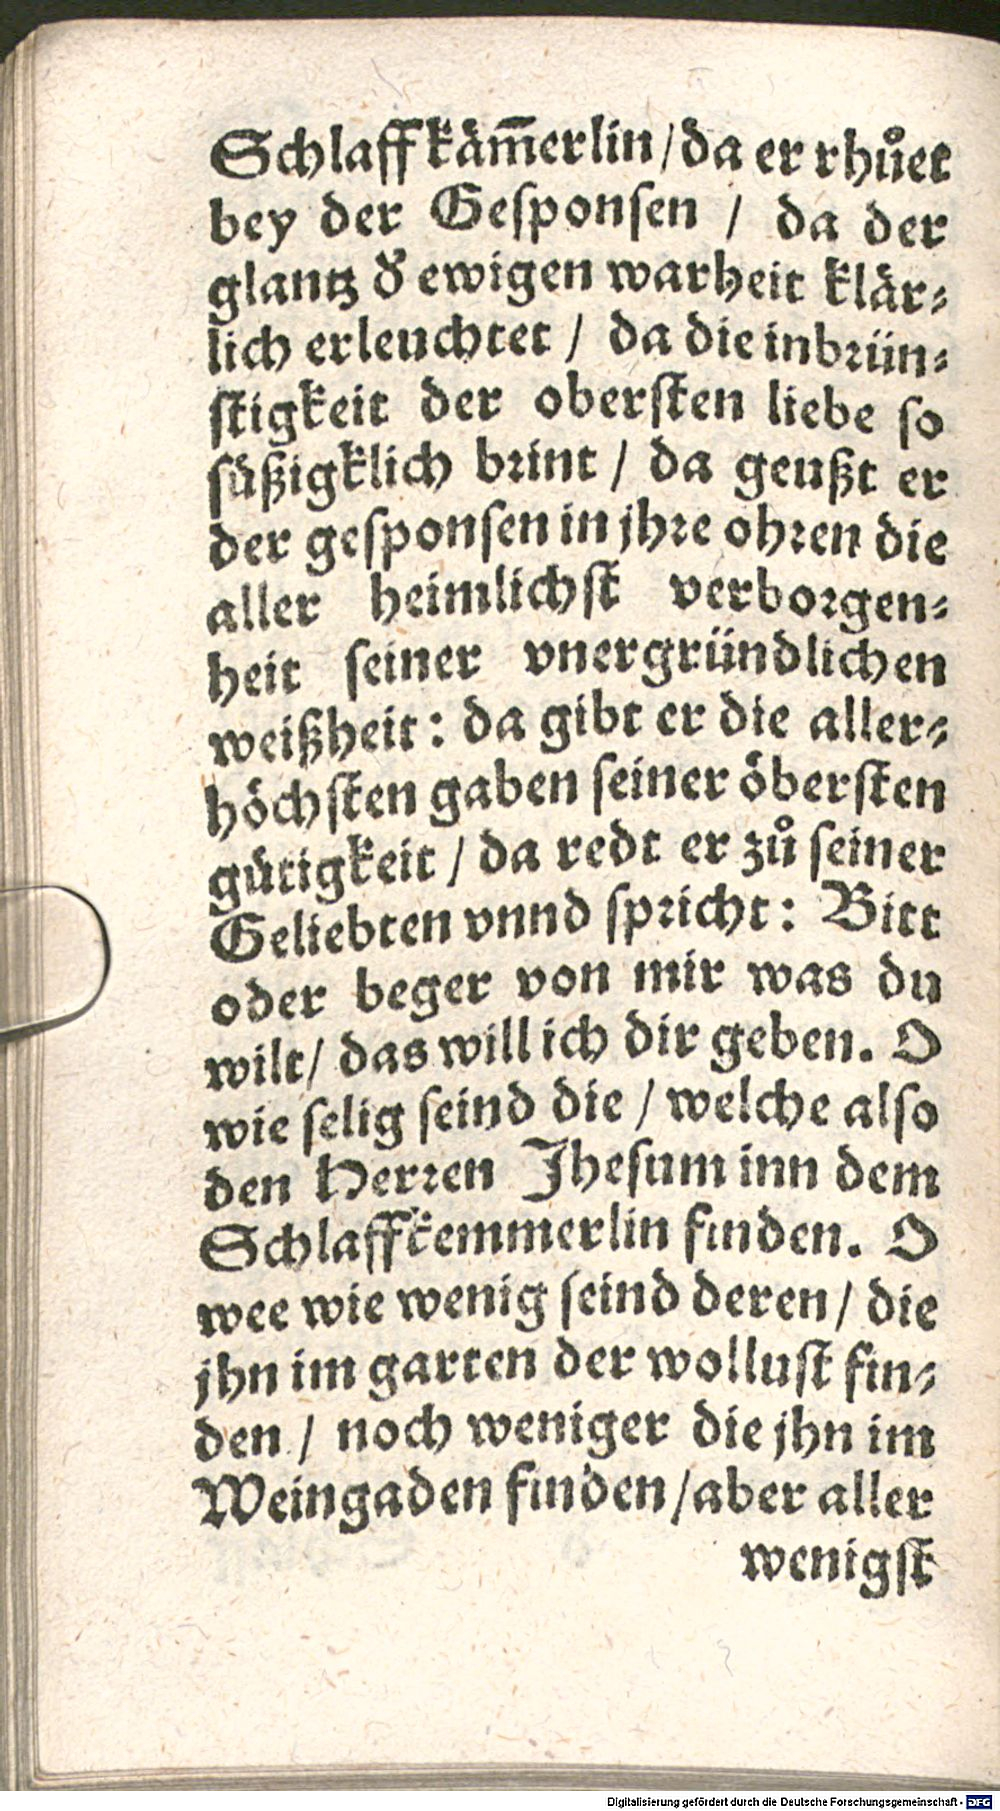 Schlaffkäm̄erlin / da er rhůet
bey der Gesponsen / da der
glantz d' ewigen warheit klär⸗
lich erleuchtet / da die inbrün⸗
stigkeit der obersten liebe so
süßigklich brint / da geußt er
der gesponsen in jhre ohren die
aller heimlichst verborgen⸗
heit seiner vnergründlichen
weißheit: da gibt er die aller⸗
höchsten gaben seiner öbersten
gütigkeit / da redt er zů seiner
Geliebten vnnd spricht: Bitt
oder beger von mir was du
wilt / das will ich dir geben. O
wie selig seind die / welche also
den Herren Jhesum inn dem
Schlaffkemmerlin finden. O
wee wie wenig seind deren / die
jhn im garten der wollust fin⸗
den / noch weniger die jhn im
Weingaden finden / aber aller
wenigst
Digitalisierung gefördert durch die Deutsche Forschungsgemeinschaft - DFG